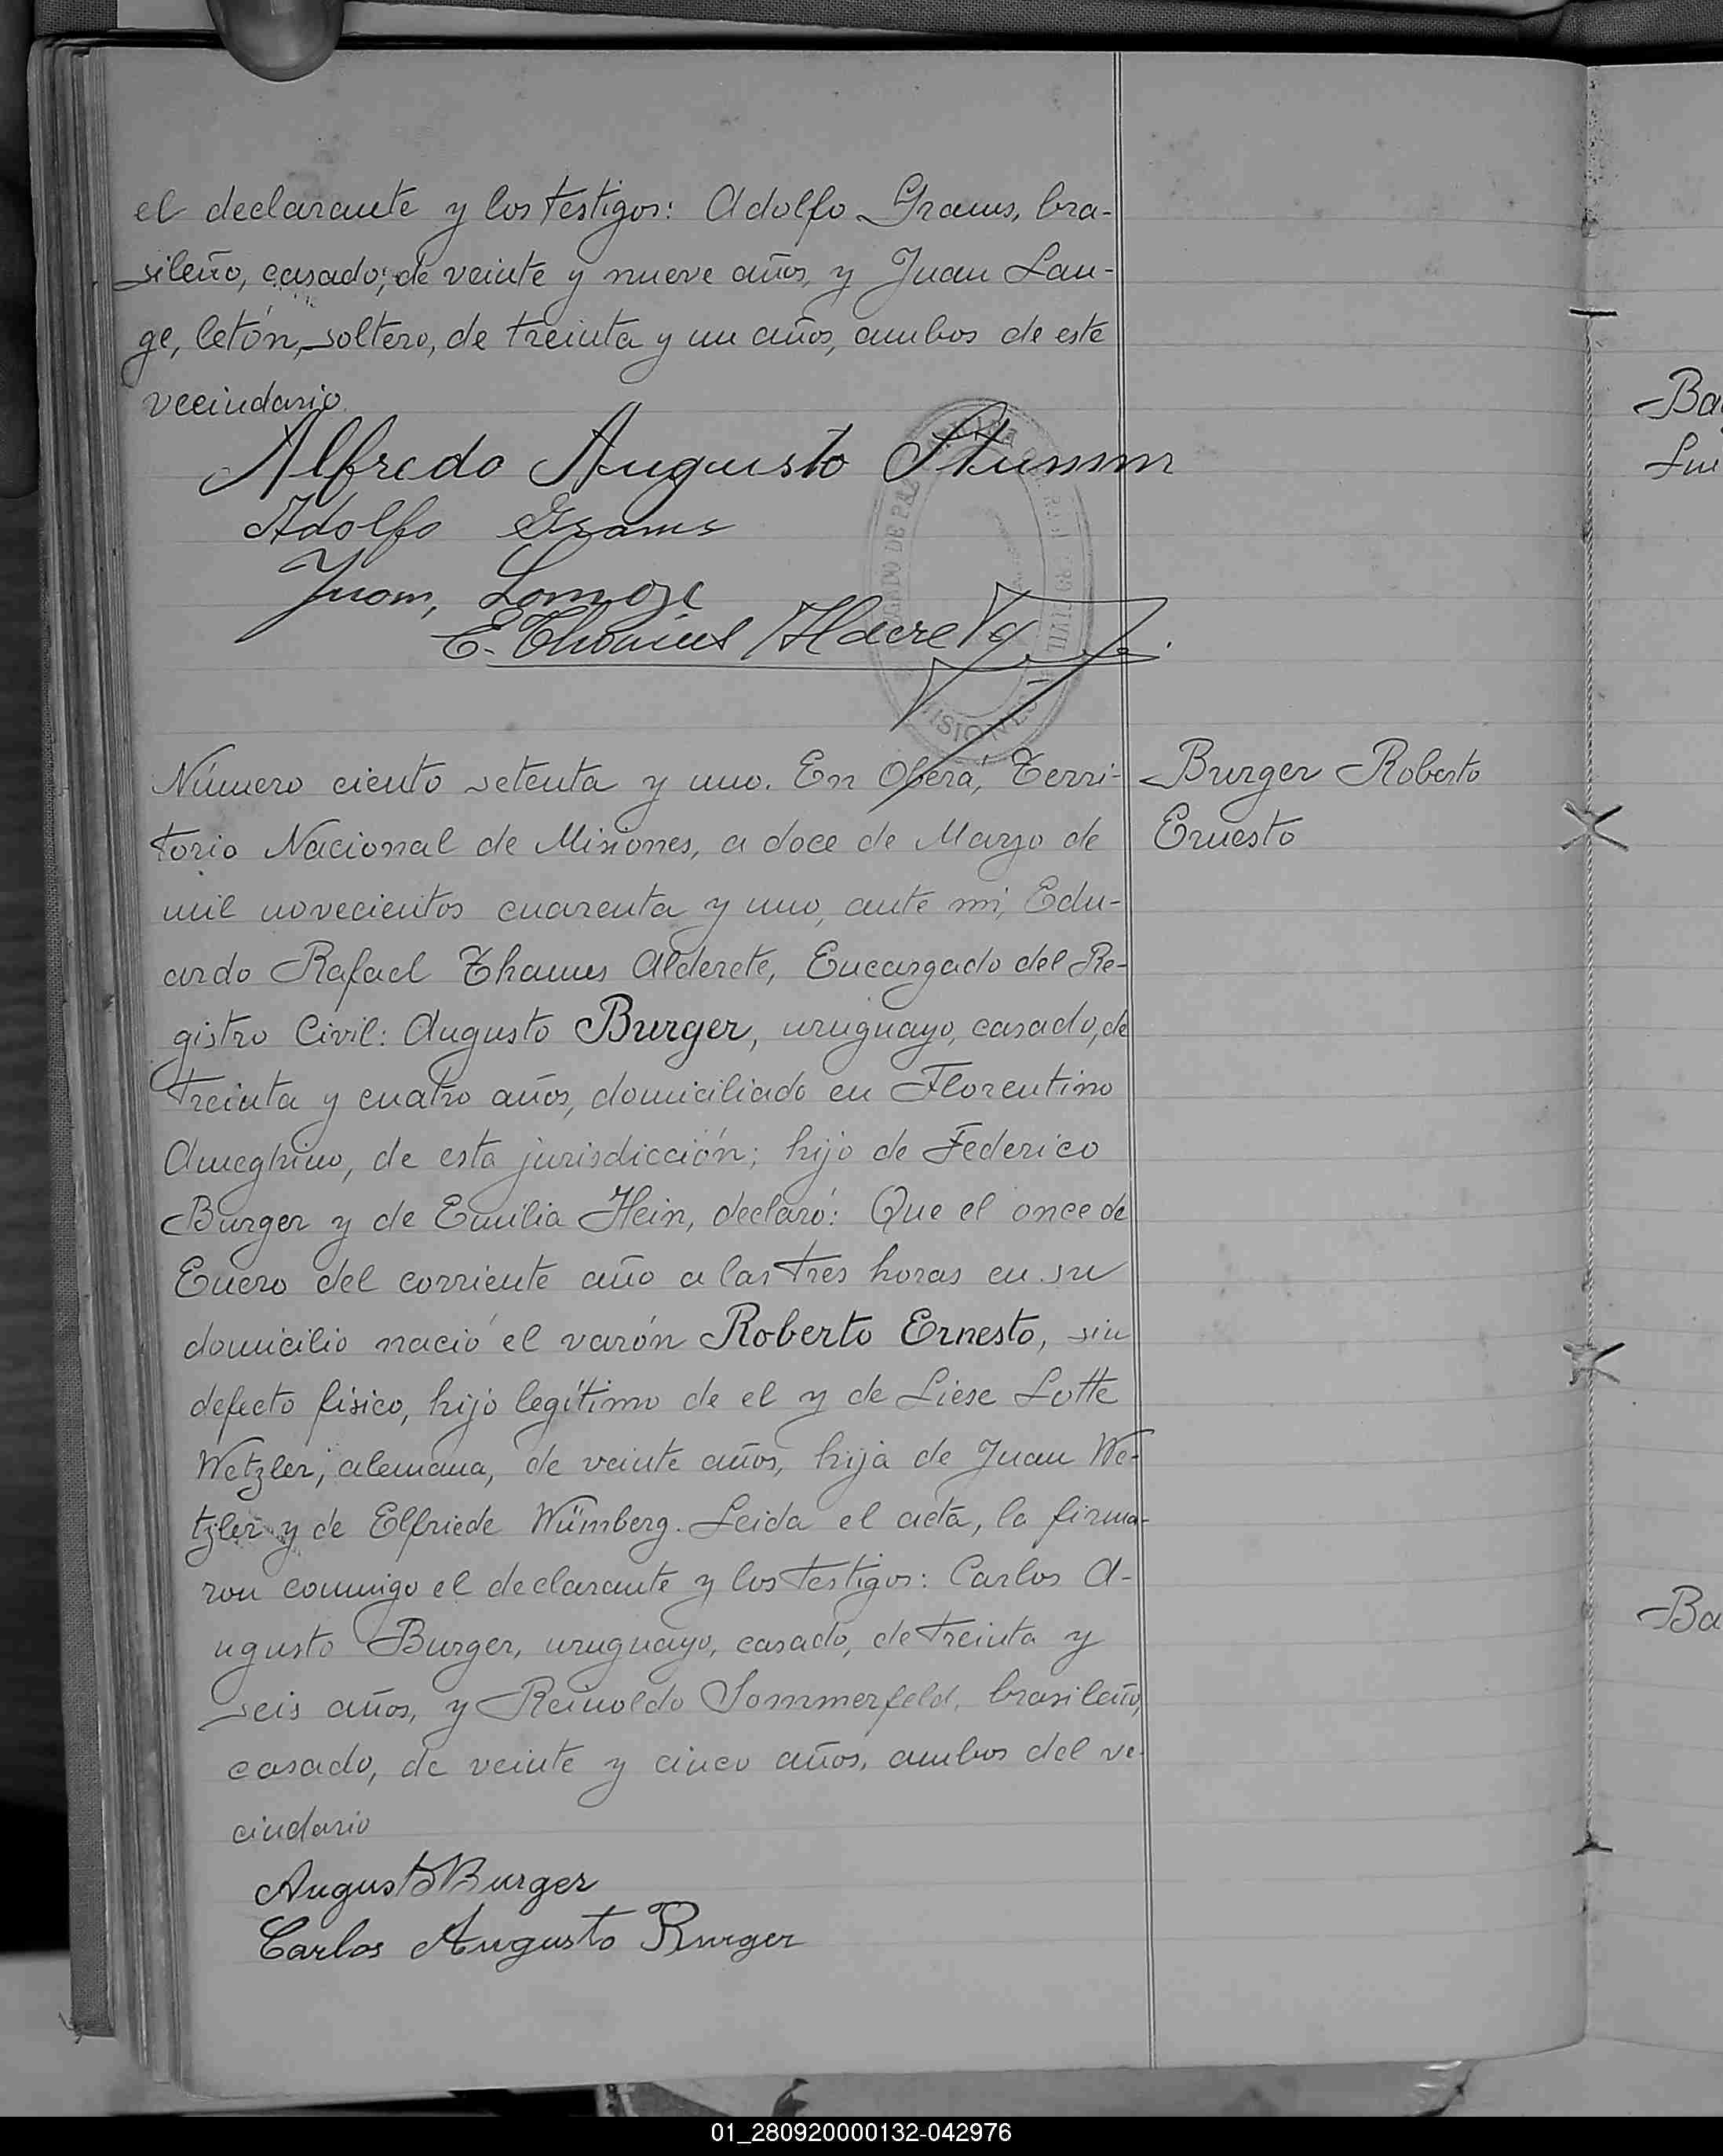 el declarante y los testigos: Adolfo Grams, bra-
sileño, casado, de veinte y nueve años, y Juan Lan-
ge, letón, soltero, de treinta y un años, ambos de este
vecindario.
Alfredo Augusto Stumm
Adolfo Grams
Juan, Lange
E. Thamus Alderete
JUZGADO DE PAZ
CIVIL
MISIONES
Número ciento setenta y uno. En Oberá, Terri-
Burger Roberto
torio Nacional de Misiones, a doce de Marzo de
Ernesto
mil novecientos cuarenta y uno, ante mi, Edu-
ardo Rafael Thamus Alderete, Encargado del Re-
gistro Civil: Augusto Burger, uruguayo, casado, de
treinta y cuatro años, domiciliado en Florentino
Ameghino, de esta jurisdicción; hijo de Federico
Burger y de Emilia Hein, declaró: Que el once de
Enero del corriente año a las tres horas en su
domicilio nació el varón Roberto Ernesto, sin
defecto físico, hijo legítimo de el y de Liese Lotte
Wetzler, alemana, de veinte años, hija de Juan We-
tzler y de Elfriede Wümberg. Leida el acta, la firma-
ron conmigo el declarante y los testigos: Carlos A-
ugusto Burger, uruguayo, casado, de treinta y
seis años, y Reinoldo Sommerfeld, brasileño,
casado, de veinte y cinco años, ambos del ve-
cindario
Augusto Burger
Carlos Augusto Burger
Ba
Ba
01_280920000132-042976